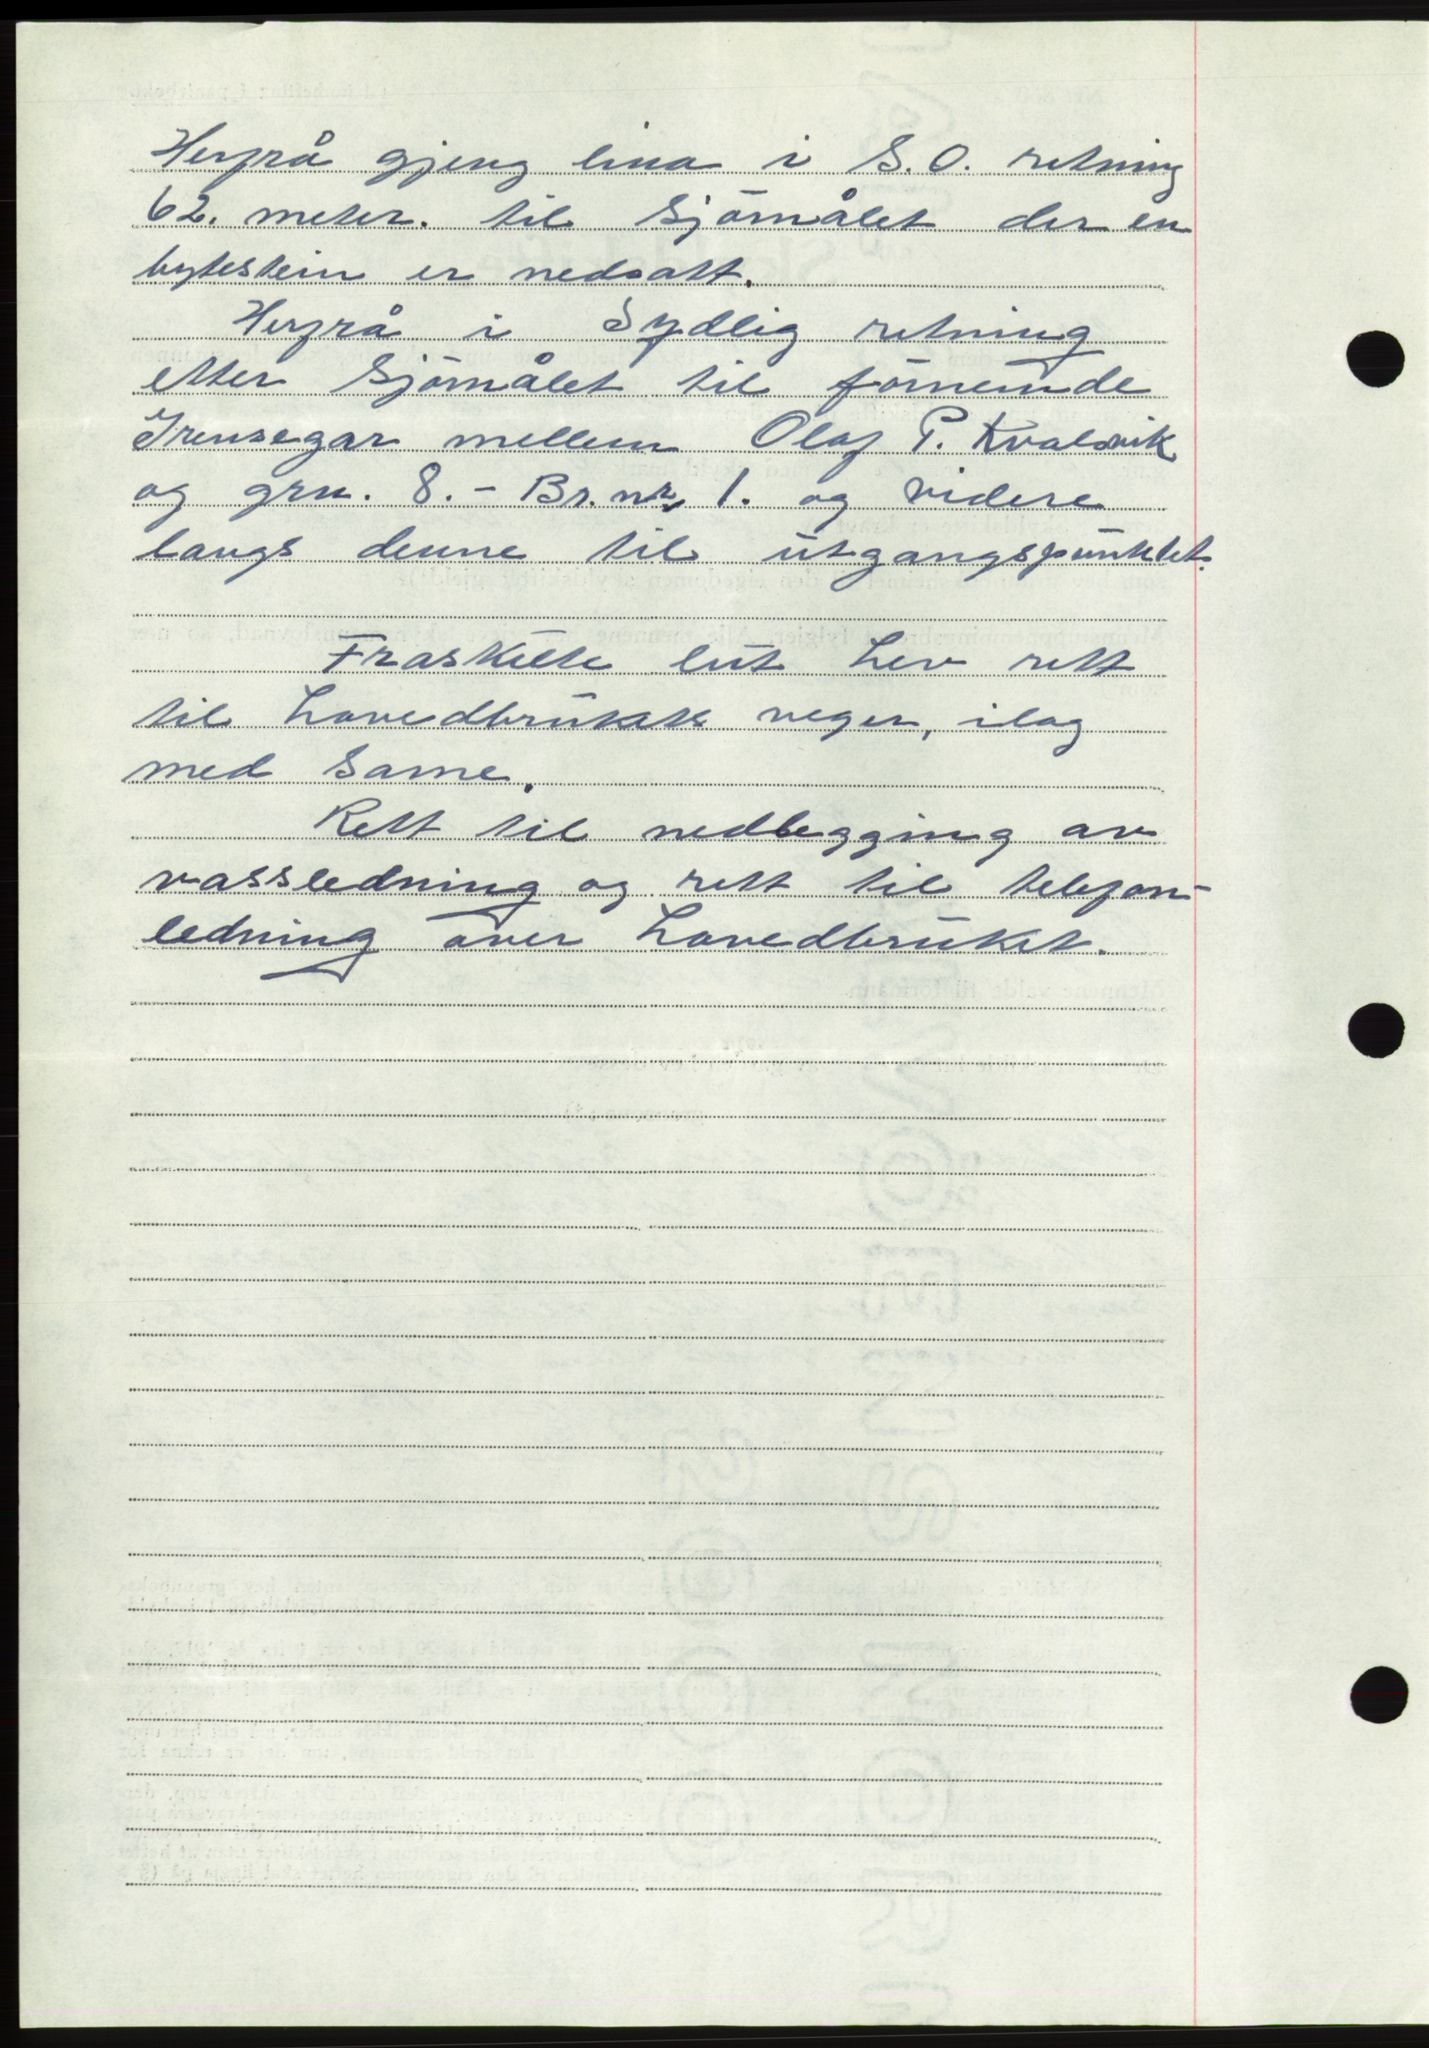 Herfrå gjeng lina i S.O. retning
62. meter. til Sjömålet der en
bytestein er nedsatt.
Herfrå i Sydlig retning
etter Sjömålet til förnemde
Grensegar mellem Olaf P. Kvalsvik
og grn. 8. - Br. nr. 1. og videre
langs denne til utgangspunktet.
Fraskilte lut hev rett
til hovedbrukets veger, ilag
med same.
Rett til nedlegging av
vassledning og rett til telefon-
ledning over hovedbruket.